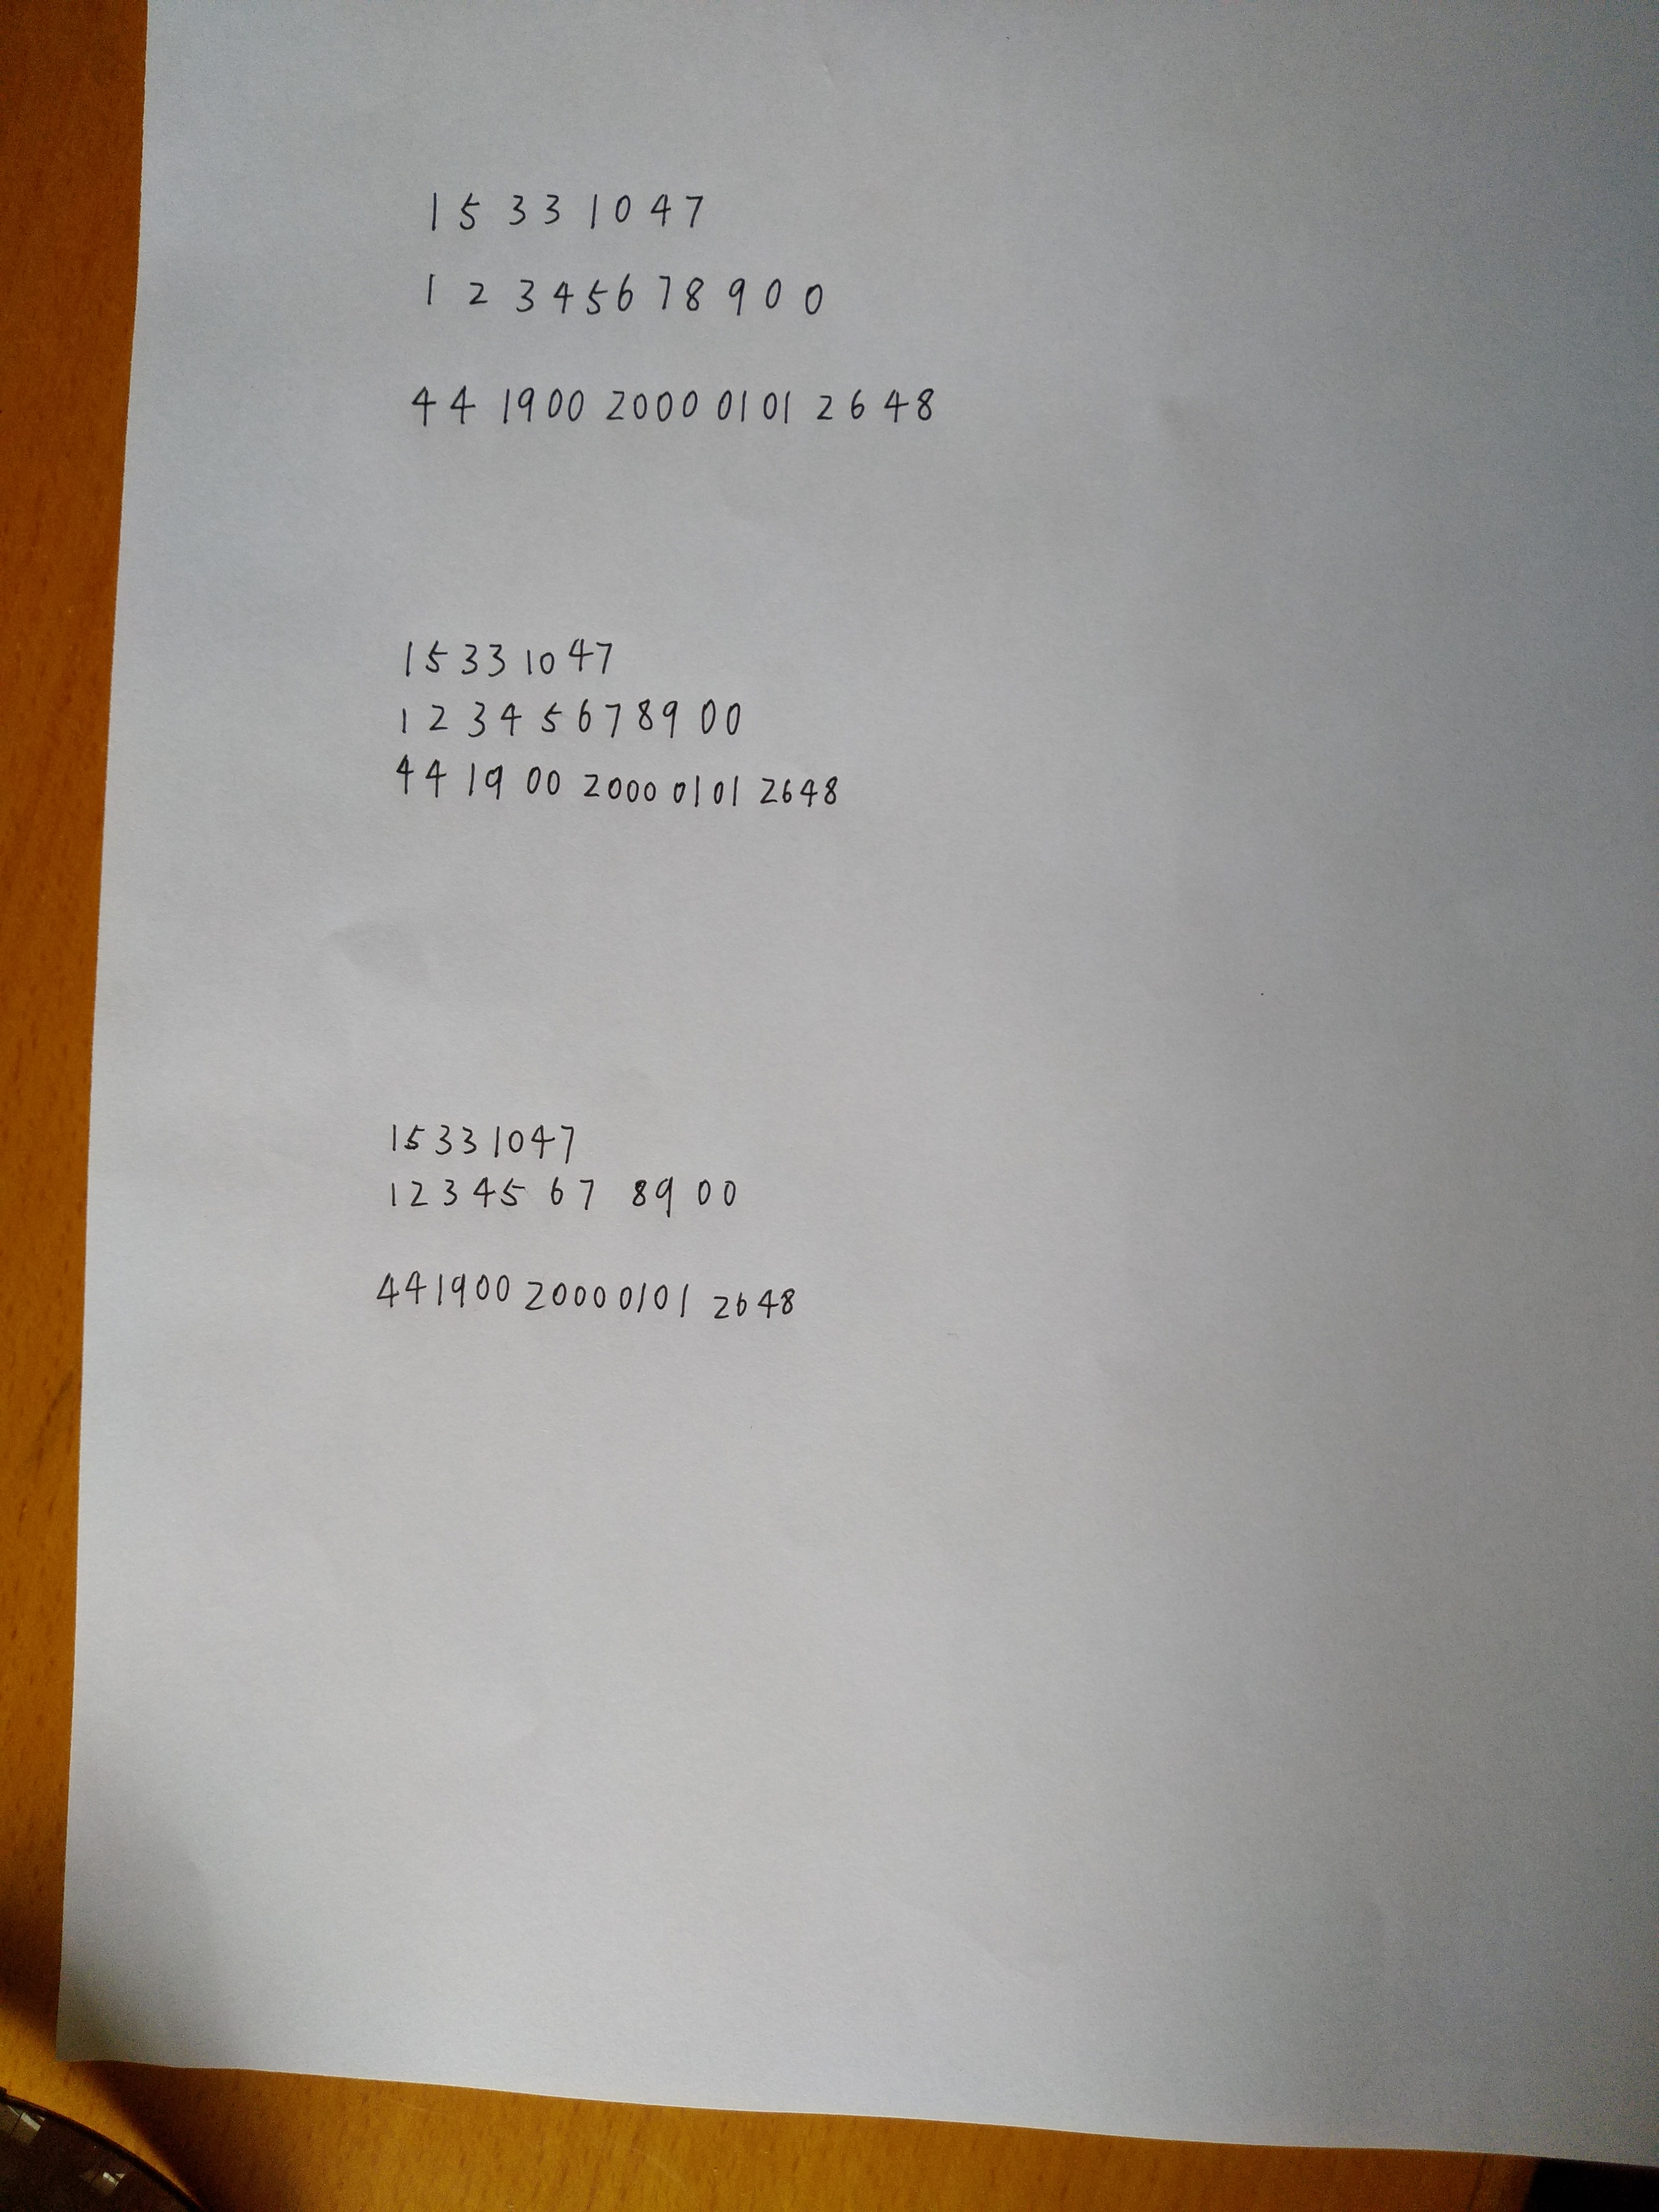 15 33 10 47
1 2 3 4 5 6 7 8 9 0 0
44 1900 2000 0101 2648
15 33 10 47
1 2 3 4 5 6 7 8 9 00
44 19 00 2000 0101 2648
15 33 1047
12345 67 89 00
441900 20000101 2648